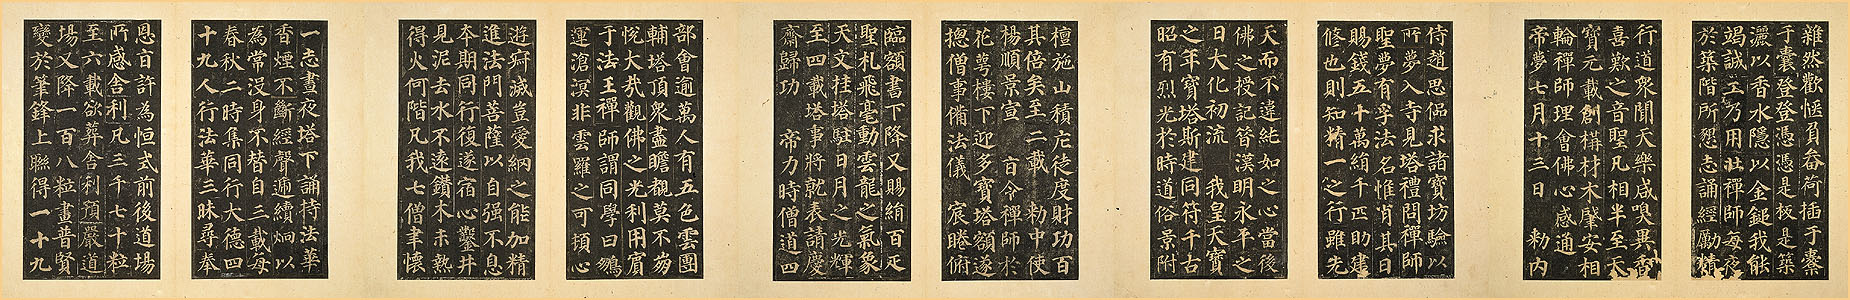 雜然歡愜負畚荷插于橐
于囊登登憑憑是板是築
灑以香水隱以金鎚我能
竭誠工乃用壯禪師每夜
於築階所懇志誦經勵精
行道衆聞天樂咸嗅異香
喜歎之音聖凡相半至天
寶元載創構材木肇安相
輪禪師理會佛心感通
帝夢七月十三日勑内
侍趙思偘求諸寶坊驗以
所夢入寺見塔禮問禪師
聖夢有孚法名惟肖其日
賜錢五十萬絹千匹助建
修也則知精一之行雖先
天而不違純如之心當後
佛之授記昔漢明永平之
日大化初流 我皇天寶
之年寶塔斯建同符千古
昭有烈光於時道俗景附
檀施山積庀徒度財功百
其倍矣至二載 勑中使
楊順景宣 旨令禪師於
花萼樓下迎多寶塔額遂
揔僧事備法儀 宸睠俯
臨額書下降又賜絹百疋
聖札飛毫動雲龍之氣象
天文挂塔駐日月之光輝
至四載塔事將就表請慶
齋歸功 帝力時僧道四
部會逾萬人有五色雲團
輔塔頂衆盡瞻覩莫不崩
悅大哉觀佛之光利用賓
于法王禪師謂同學曰鵬
運滄溟非雲羅之可頓心
遊寂滅豈愛網之能加精
進法門菩薩以自强不息
本期同行復遂宿心鑿井
見泥去水不遠鑽木未熱
得火何階凡我七僧聿懷
一志晝夜塔下誦持法華
香煙不斷經聲遞續炯以
為常没身不替自三載每
春秋二時集同行大德四
十九人行法華三昧尋奉
恩旨許為恒式前後道場
所感舍利凡三千七十粒
至六載欲葬舍利預嚴道
場又降一百八粒畫普賢
變於筆鋒上聯得一十九